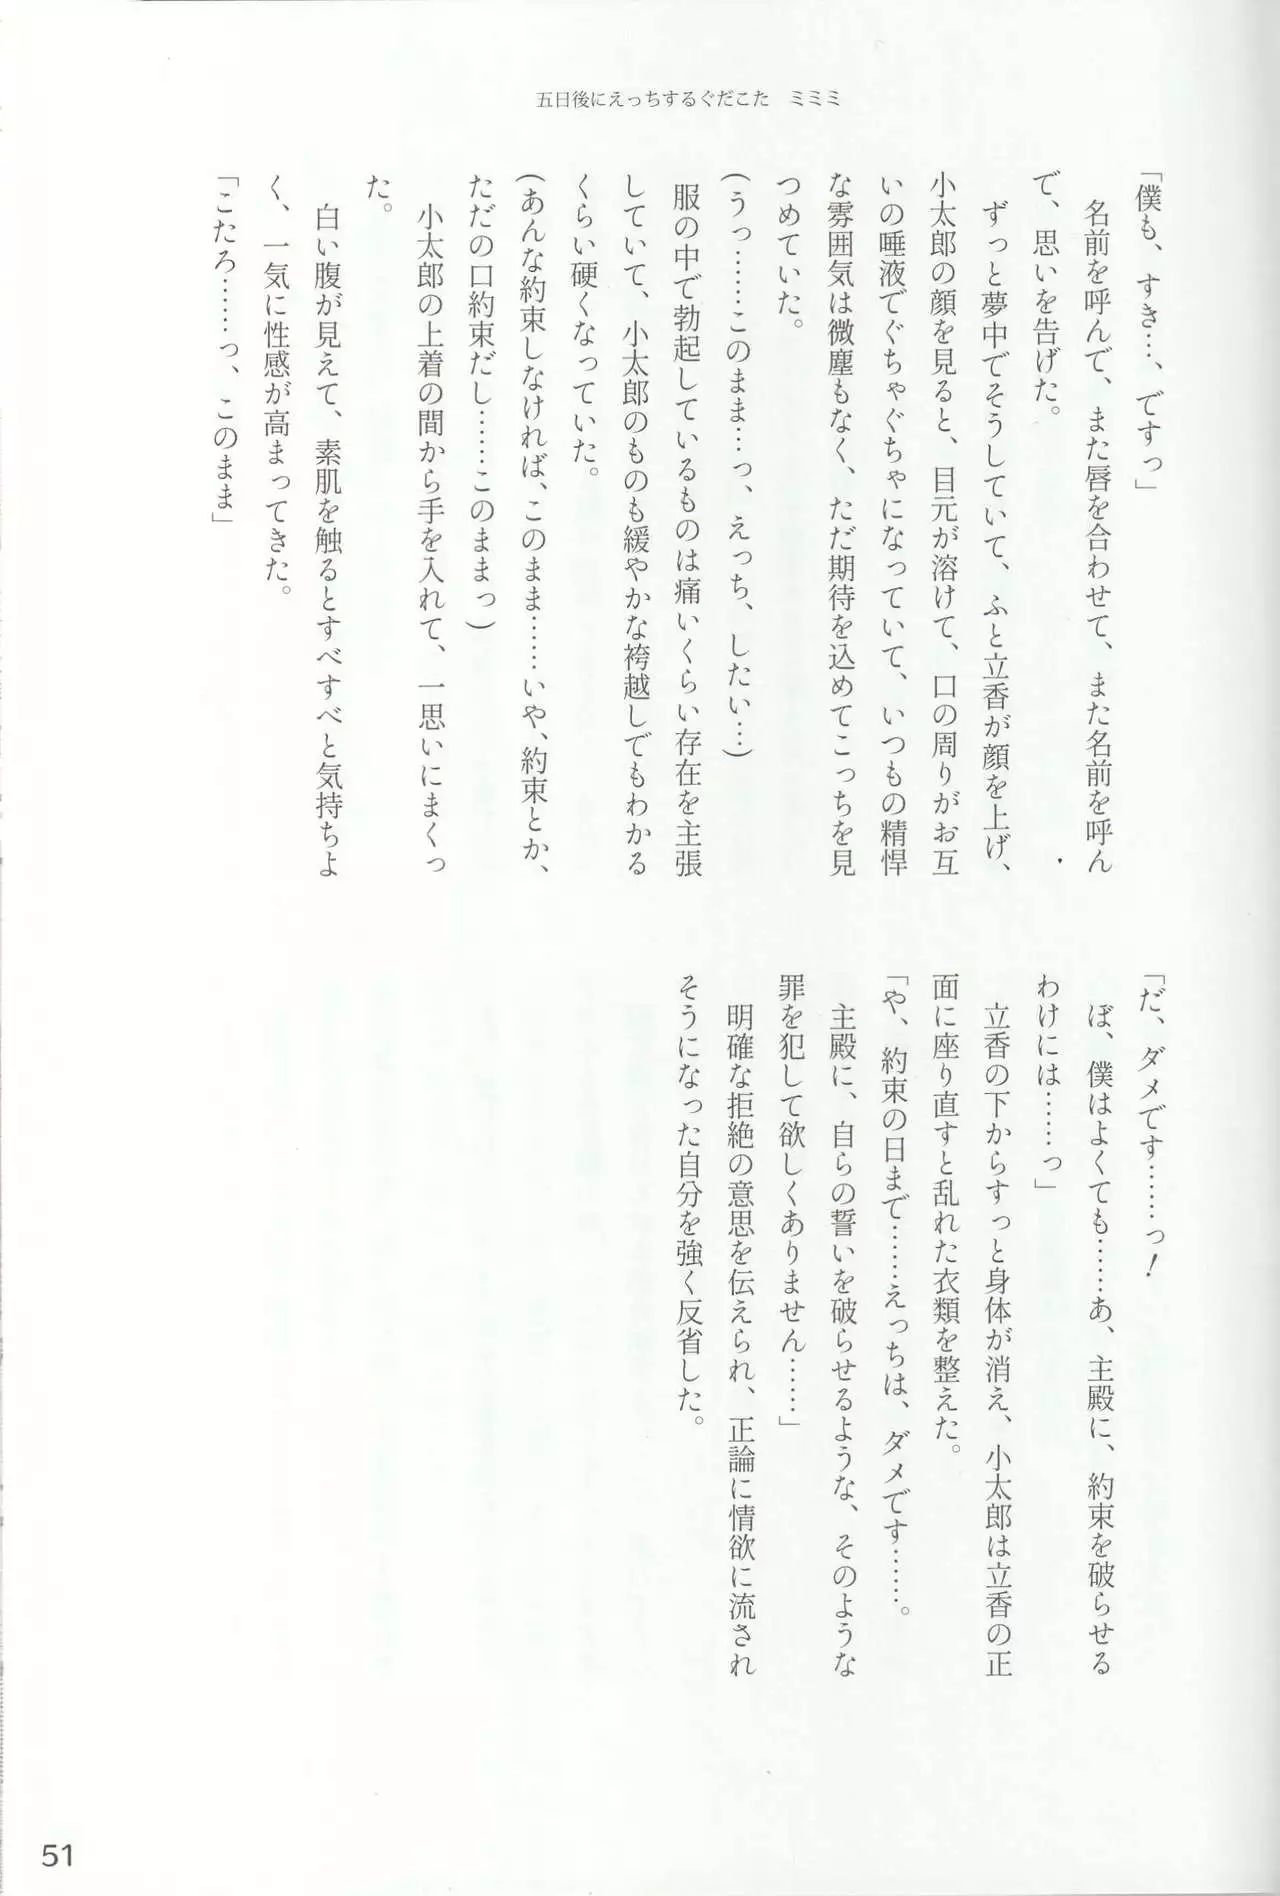 五日後にえっちするぐだこた　ミミミ
「僕も、すき…、ですっ」
　名前を呼んで、また唇を合わせて、また名前を呼ん
で、思いを告げた。
　ずっと夢中でそうしていて、ふと立香が顔を上げ、
小太郎の顔を見ると、目元が溶けて、口の周りがお互
いの唾液でぐちゃぐちゃになっていて、いつもの精悍
な雰囲気は微塵もなく、ただ期待を込めてこっちを見
つめていた。
(うっ……このまま…っ、えっち、したい…)
　服の中で勃起しているものは痛いくらい存在を主張
していて、小太郎のものも緩やかな袴越しでもわかる
くらい硬くなっていた。
(あんな約束しなければ、このまま……いや、約束とか、
ただの口約束だし……このままっ)
　小太郎の上着の間から手を入れて、一思いにまくっ
た。
　白い腹が見えて、素肌を触るとすべすべと気持ちよ
く、一気に性感が高まってきた。
「こたろ……っ、このまま」
「だ、ダメです……っ！
　ぼ、僕はよくても……あ、主殿に、約束を破らせる
わけには……っ」
　立香の下からすっと身体が消え、小太郎は立香の正
面に座り直すと乱れた衣類を整えた。
「や、約束の日まで……えっちは、ダメです……。
　主殿に、自らの誓いを破らせるような、そのような
罪を犯して欲しくありません……」
　明確な拒絶の意思を伝えられ、正論に情欲に流され
そうになった自分を強く反省した。
51